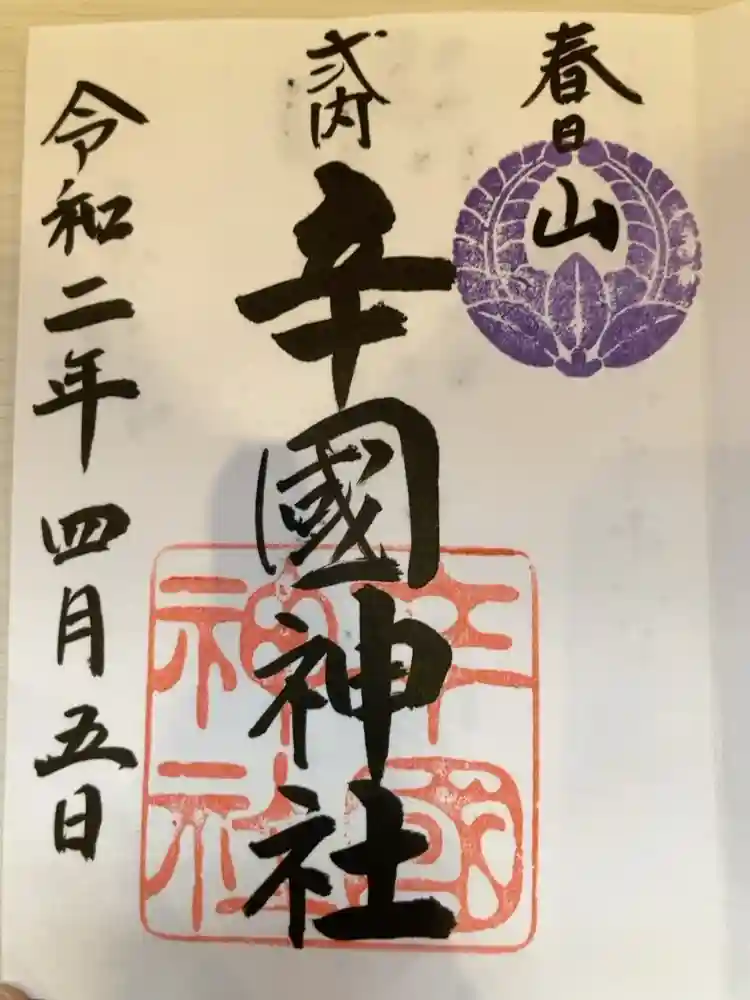 春日山
式内
辛國神社
辛國神社
令和二年四月五日